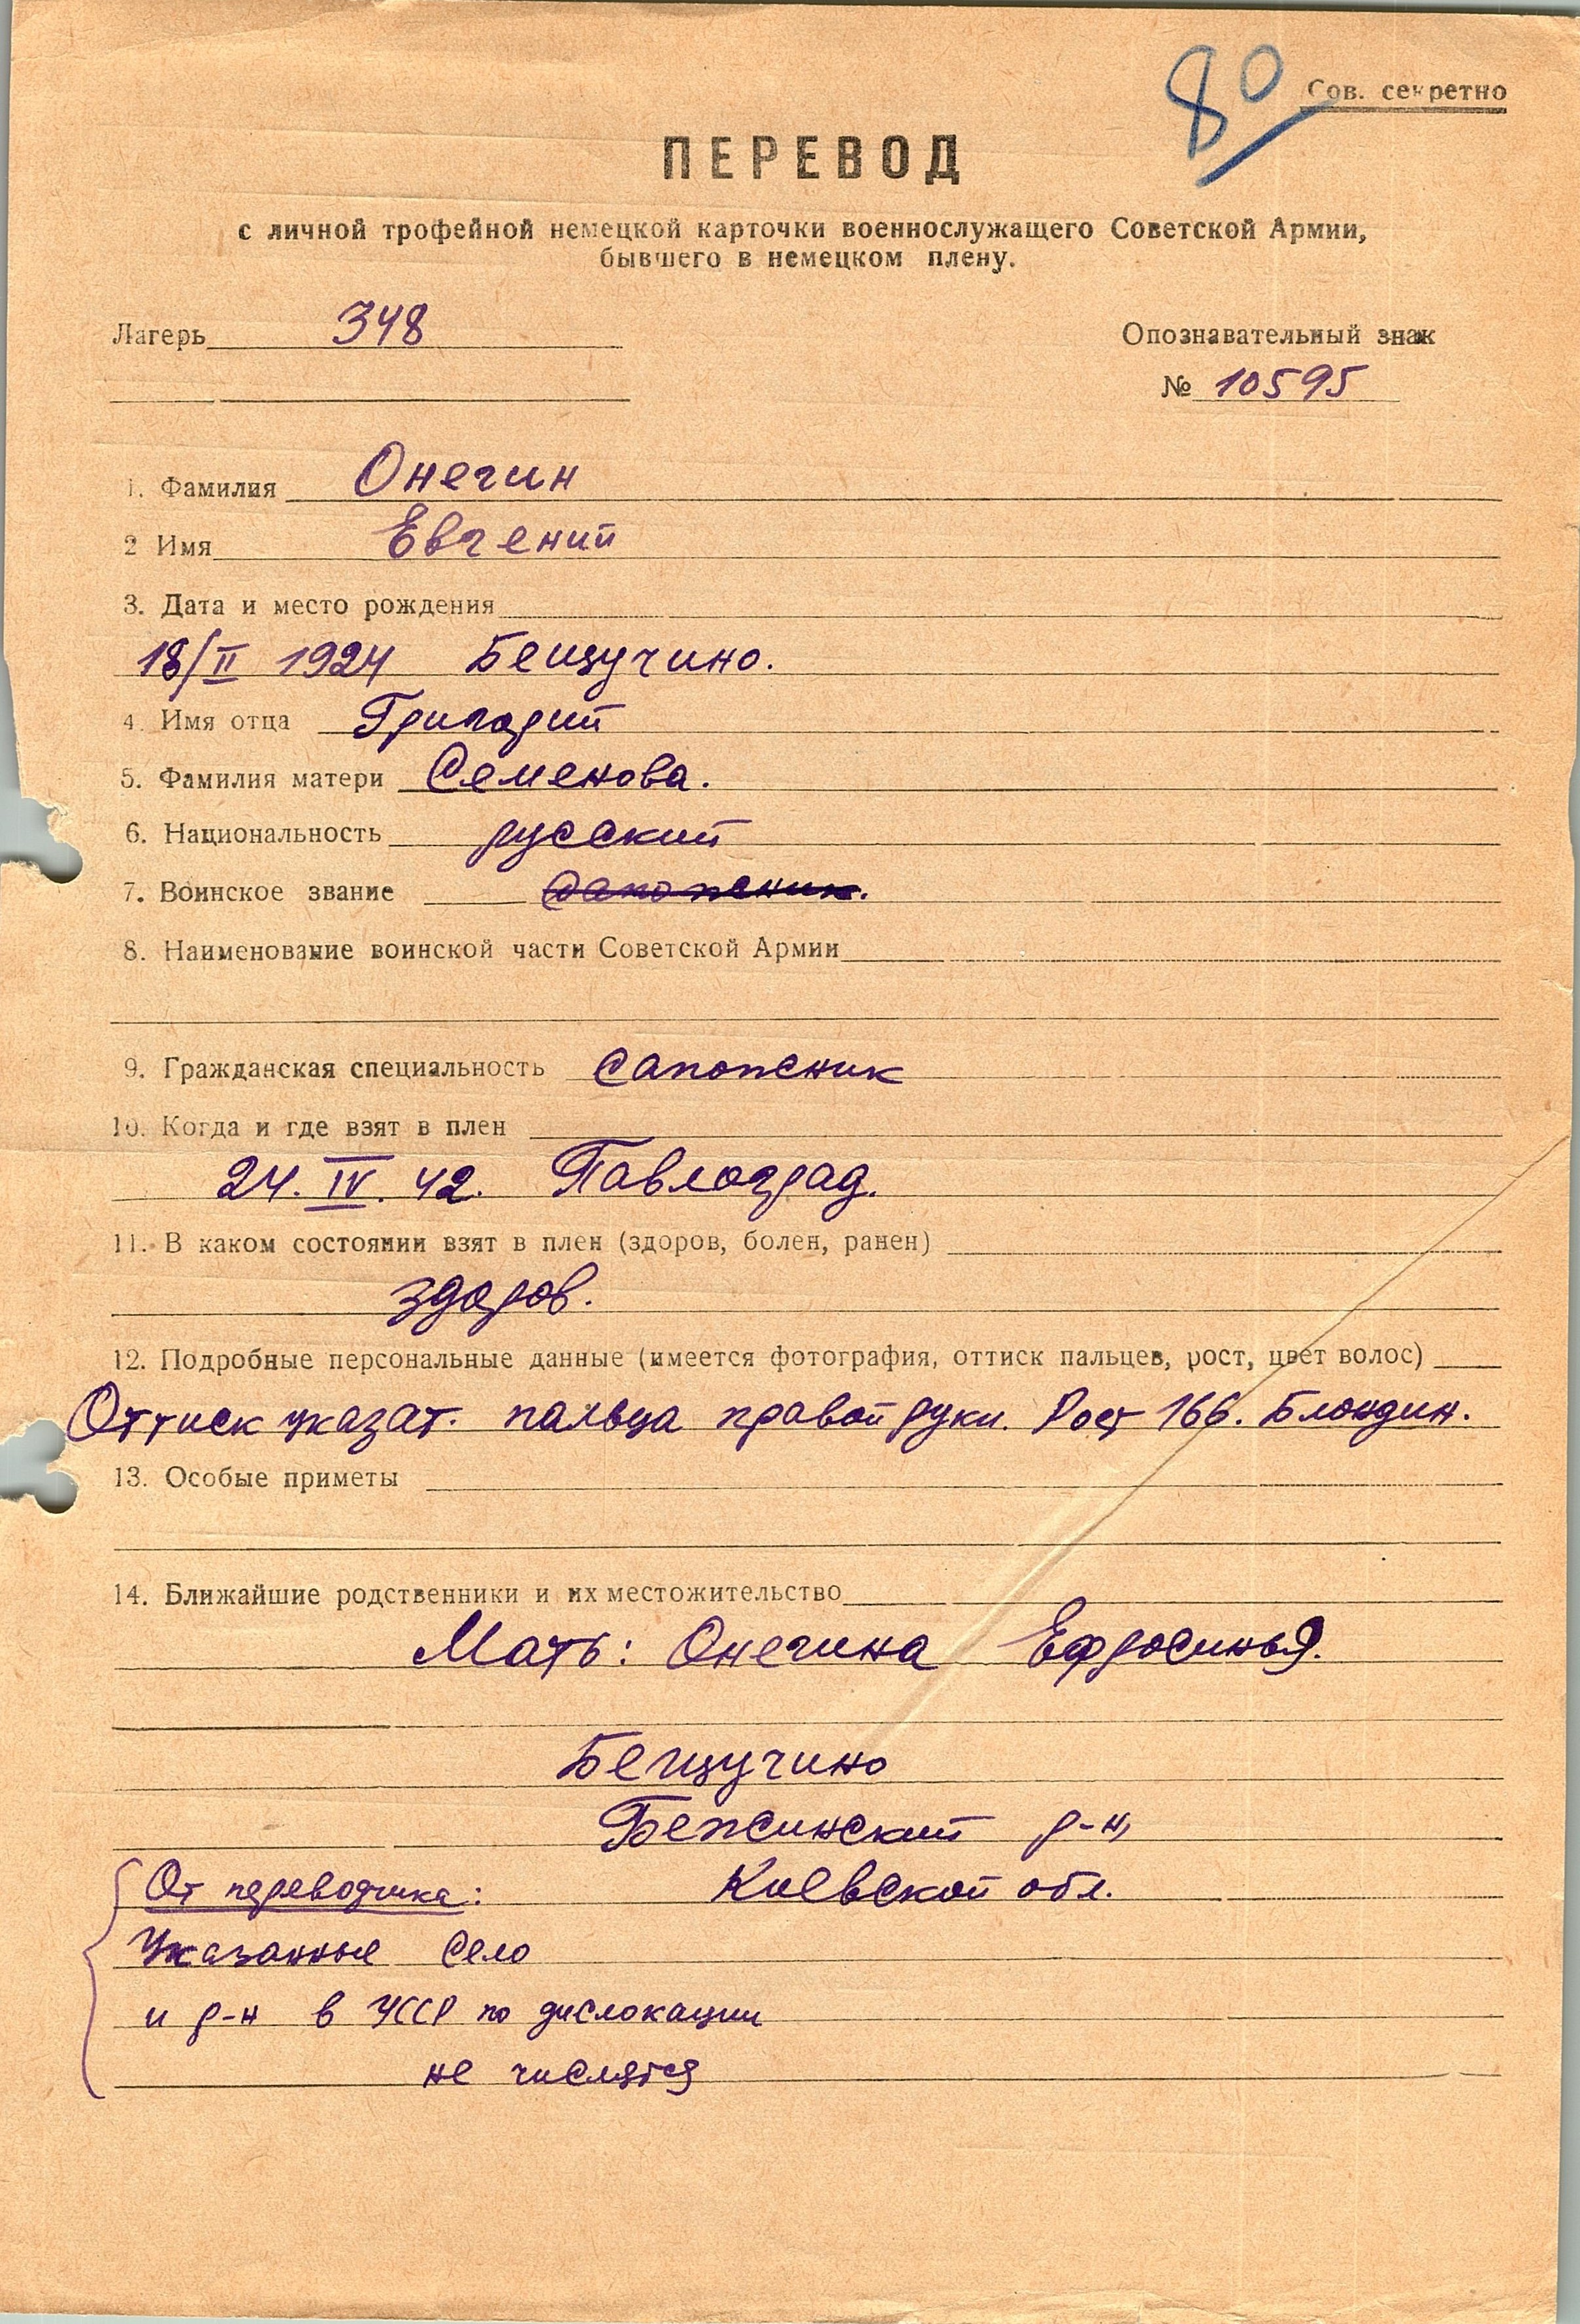 80
Сов. секретно
ПЕРЕВОД
с личной трофейной немецкой карточки военнослужащего Советской Армии,
бывшего в немецком плену.
Лагерь 348
Опознавательный знак
№ 10595
1. Фамилия Онегин
2 Имя Евгений
3. Дата и место рождения
18/II 1924 Бещучино.
4. Имя отца Григорий
5. Фамилия матери Семенова.
6. Национальность русский
7. Воинское звание сапожник.
8. Наименование воинской части Советской Армии
9. Гражданская специальность сапожник
10. Когда и где взят в плен
24. IV. 42. Павлоград.
11. В каком состоянии взят в плен (здоров, болен, ранен)
здоров.
12. Подробные персональные данные (имеется фотография, оттиск пальцев, рост, цвет волос)
Оттиск указат. пальца правой руки. Рост 166. Блондин.
13. Особые приметы
14. Ближайшие родственники и их местожительство
Мать: Онегина Ефросинья.
Бещучино
Бежинский р-н,
От переводчика: Киевской обл.
Указанные село
и р-н в УССР по дислокации
не числятся